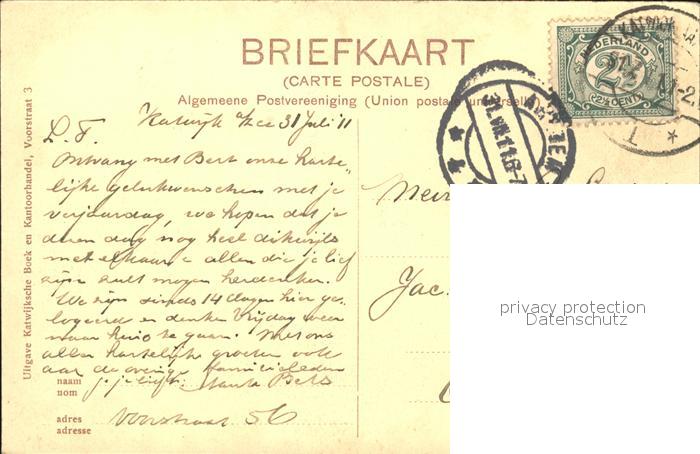 BRIEFKAART
(CARTE POSTALE)
Algemeene Postvereeniging (Union postale universelle)
NEDERLAND
2½
(2½ CENT)
KATWIJK
31.VII.11.6-7
Uitgave Katwijksche Boek en Kantoorhandel, Voorstraat 3
Katwijk a/zee 31 Juli '11
L. T.
Ontvang met Bert onze harte-
lijke gelukwenschen met je
verjaardag, we hopen dat je
dezen dag nog heel dikwijls
met elkaar en allen die je lief
zijn zult mogen herdenken.
We zijn sinds 14 dagen hier ge-
logeerd en denken Vrijdag weer
naar huis te gaan. Met ons
allen hartelijke groeten ook
aan de overige familieleden
je liefh. Tante Bets
naam
nom
adres
adresse
Voorstraat 56
Jac.
privacy protection
Datenschutz